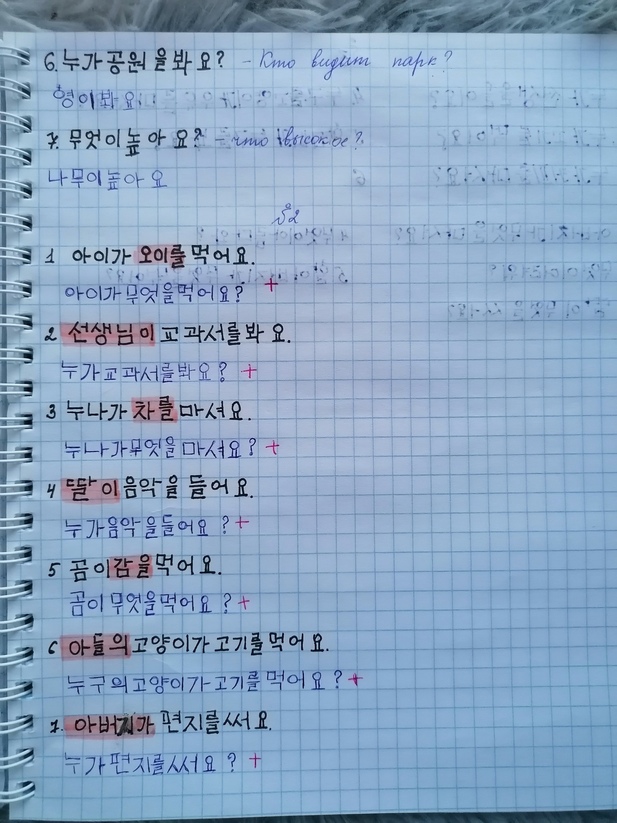 6. 누가 공원을 봐요? – Кто видит парк?
형이 봐요
7. 무엇이 높아요? – что высокое?
나무이 높아요
№2
1 아이가 오이를 먹어요.
아이가 무엇을 먹어요? +
2 선생님이 교과서를 봐요.
누가 교과서를 봐요? +
3 누나가 차를 마셔요.
누나가 무엇을 마셔요? +
4 딸이 음악을 들어요.
누가 음악을 들어요? +
5 곰이 감을 먹어요.
곰이 무엇을 먹어요? +
6 아들의 고양이가 고기를 먹어요.
누구의 고양이가 고기를 먹어요? +
7. 아버지가 편지를 써요.
누가 편지를 써요? +